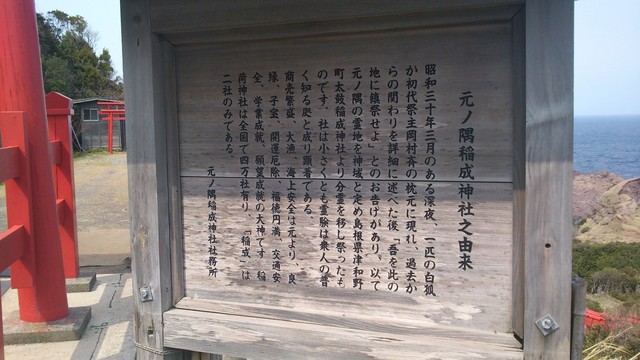 元ノ隅稲成神社之由来
昭和三十年三月のある深夜、一匹の白狐
が初代祭主岡村斉の枕元に現れ、過去か
らの関わりを詳細に述べた後「吾を此の
地に鎮祭せよ」とのお告げがあり。以て
元ノ隅の霊地を神域と定め島根県津和野
町太鼓稲成神社より分霊を移し祭ったも
のです」社は小さくとも霊験は衆人の普
く知る処と成り顕著である。
商売繁盛、大漁、海上安全は元より、良
縁、子宝、開運厄除、福徳円満、交通安
全、学業成就、願望成就の大神です　稲
荷神社は全国で四万社有り、「稲成」は
二社のみである。
元ノ隅稲成神社社務所